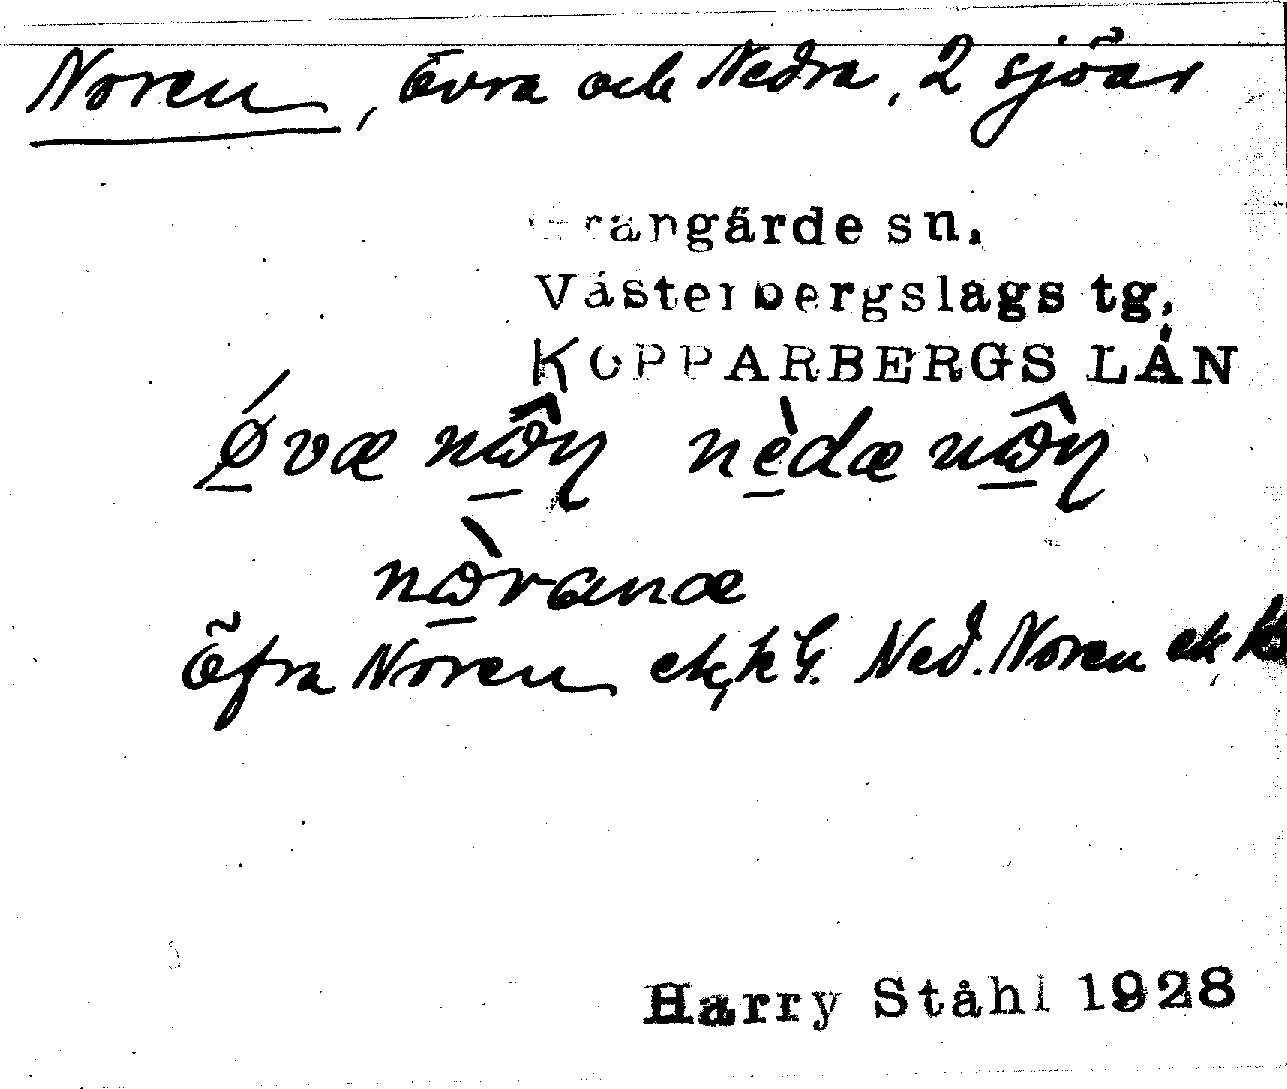 Noren, Övra och Nedra, 2 sjöar
Grangärde sn.
Västerbergslags tg.
KOPPARBERGS LÄN
ǿvæ nω̂η nèdæ nω̂η
nὼranæ
Öfra Noren ek, k G. Ned. Noren ek
Harry Ståhl 1928